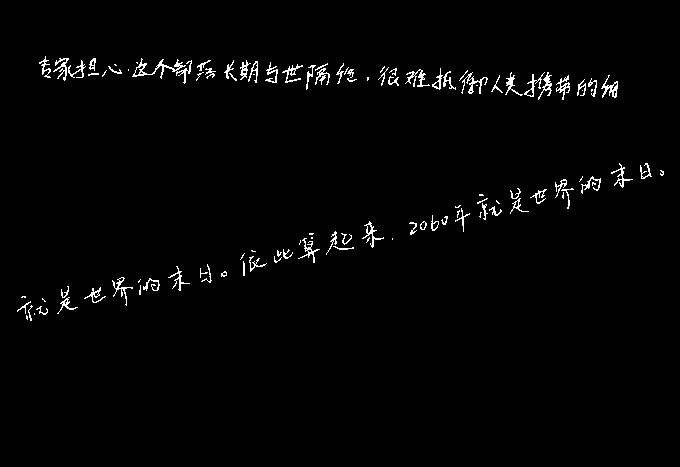 专家担心,这个部落长期与世隔绝,很难抵御人类携带的细
就是世界的末日。依此算起来,2060年就是世界的末日。